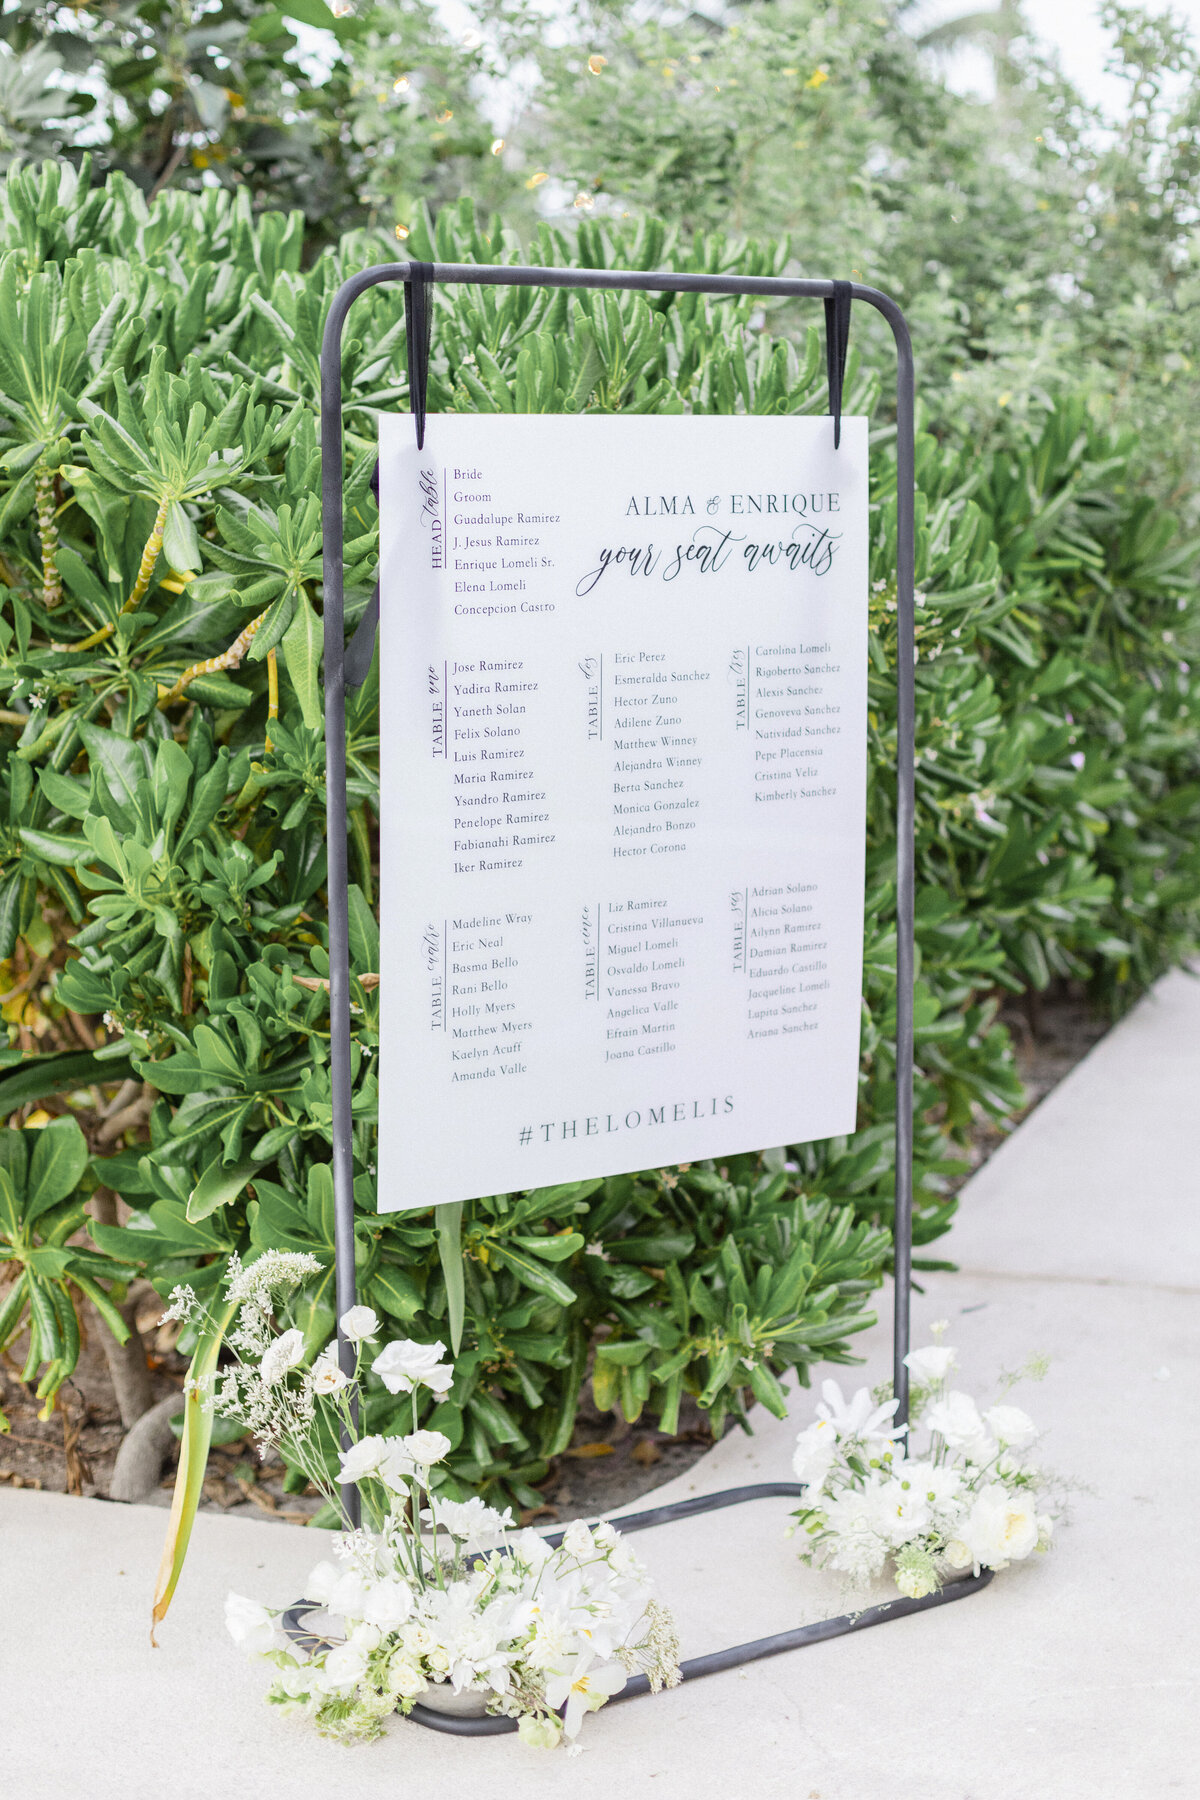 ALMA & ENRIQUE
your seat awaits
HEAD table
Bride
Groom
Guadalupe Ramirez
J. Jesus Ramirez
Enrique Lomeli Sr.
Elena Lomeli
Concepcion Castro
TABLE uno
Jose Ramirez
Yadira Ramirez
Yaneth Solan
Felix Solano
Luis Ramirez
Maria Ramirez
Ysandro Ramirez
Penelope Ramirez
Fabianahi Ramirez
Iker Ramirez
TABLE dos
Eric Perez
Esmeralda Sanchez
Hector Zuno
Adilene Zuno
Matthew Winney
Alejandra Winney
Berta Sanchez
Monica Gonzalez
Alejandro Bonzo
Hector Corona
TABLE tres
Carolina Lomeli
Rigoberto Sanchez
Alexis Sanchez
Genoveva Sanchez
Natividad Sanchez
Pepe Placensia
Cristina Veliz
Kimberly Sanchez
TABLE cuatro
Madeline Wray
Eric Neal
Basma Bello
Rani Bello
Holly Myers
Matthew Myers
Kaelyn Acuff
Amanda Valle
TABLE cinco
Liz Ramirez
Cristina Villanueva
Miguel Lomeli
Osvaldo Lomeli
Vanessa Bravo
Angelica Valle
Efrain Martin
Joana Castillo
TABLE
Adrian Solano
Alicia Solano
Ailynn Ramirez
Damian Ramirez
Eduardo Castillo
Jacqueline Lomeli
Lapita Sanchez
Ariana Sanchez
#THELOMELIS